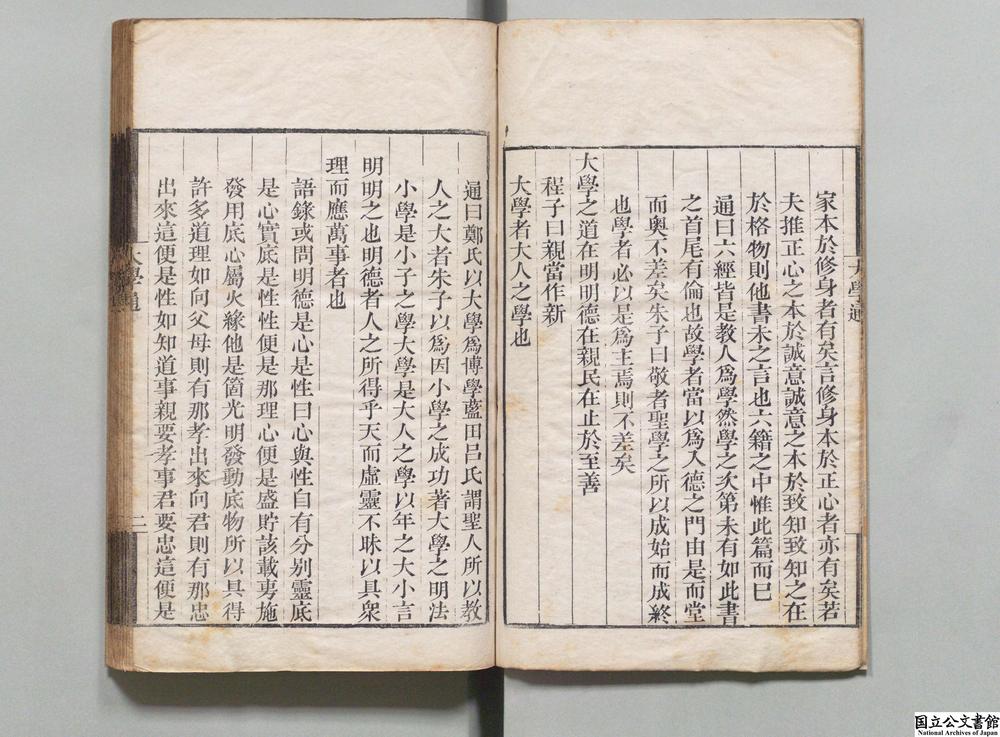 家本於修身者有矣言修身本於正心者亦有矣若
夫推正心之本於誠意誠意之本於致知致知之在
於格物則他書未之言也六籍之中惟此篇而巳
通曰六經皆是教人爲學然學之次第未有如此書
之首尾有倫也故學者當以爲入德之門由是而堂
而奧不差矣朱子曰敬者聖學之所以成始而成終
也學者必以是爲主焉則不差矣
大學之道在明明德在親民在止於至善
程子曰親當作新
大學者大人之學也
通曰鄭氏以大學爲博學藍田呂氏謂聖人所以教
人之大者朱子以爲因小學之成功著大學之明法
小學是小子之學大學是大人之學以年之大小言
明明之也明德者人之所得乎天而虛靈不昧以具衆
理而應萬事者也
語錄或問明德是心是性曰心與性自有分别靈底
是心實底是性性便是那理心便是盛貯該載旉施
發用底心屬火緣他是箇光明發動底物所以具得
許多道理如向父母則有那孝出來向君則有那忠
出來這便是性如知道事親要孝事君要忠這便是
大學通
二
国立公文書館
National Archives of Japan